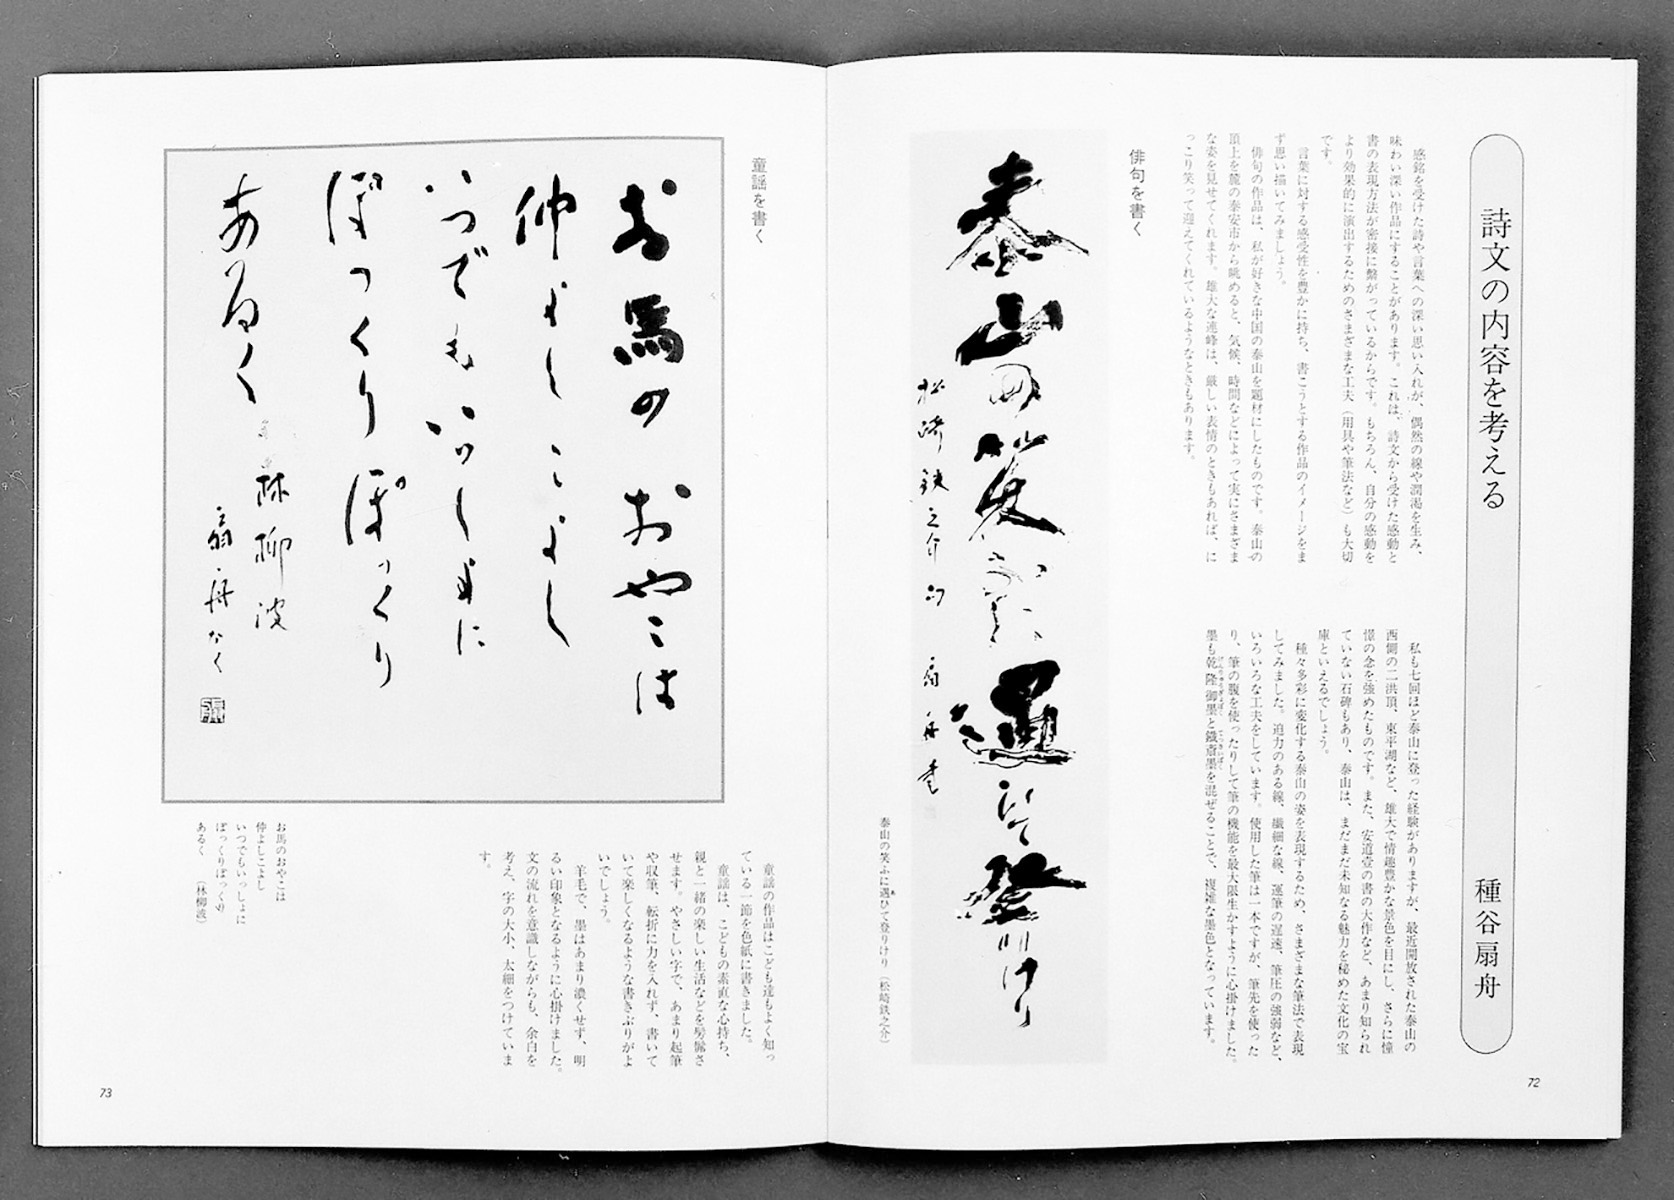 詩文の内容を考える
種谷扇舟
感銘を受けた詩や言葉への深い思い入れが、偶然の線や潤渇を生み、
味わい深い作品にすることがあります。これは、詩文から受けた感動と
書の表現方法が密接に繋がっているからです。もちろん、自分の感動を
より効果的に演出するためのさまざまな工夫（用具や筆法など）も大切
です。
言葉に対する感受性を豊かに持ち、書こうとする作品のイメージをま
ず思い描いてみましょう。
俳句の作品は、私が好きな中国の泰山を題材にしたものです。泰山の
頂上を麓の泰安市から眺めると、気候、時間などによって実にさまざま
な姿を見せてくれます。雄大な連峰は、厳しい表情のときもあれば、に
っこり笑って迎えてくれているようなときもあります。
私も七回ほど泰山に登った経験がありますが、最近開放された泰山の
西側の二洪頂、東平湖など、雄大で情趣豊かな景色を目にし、さらに憧
憬の念を強めたものです。また、安道壹の書の大作など、あまり知られ
ていない石碑もあり、泰山は、まだまだ未知なる魅力を秘めた文化の宝
庫といえるでしょう。
種々多彩に変化する泰山の姿を表現するため、さまざまな筆法で表現
してみました。迫力のある線、繊細な線、運筆の遅速、筆圧の強弱など、
いろいろな工夫をしています。使用した筆は一本ですが、筆先を使った
り、筆の腹を使ったりして筆の機能を最大限生かすように心掛けました。
墨も乾隆御墨と鐵斎墨を混ぜることで、複雑な墨色となっています。
俳句を書く
泰山の笑ふに遇ひて登りけり
松崎鉄之介句 扇舟書
泰山の笑ふに遇ひて登りけり（松崎鉄之介）
72
童謡を書く
お馬のおやこは
仲よしこよし
いつでもいつしよに
ぽつくりぽつくり
あるく
林柳波
扇舟かく
童謡の作品はこども達もよく知っ
ている一節を色紙に書きました。
童謡は、こどもの素直な心持ち、
親と一緒の楽しい生活などを髣髴さ
せます。やさしい字で、あまり起筆
や収筆、転折に力を入れず、書いて
いて楽しくなるような書きぶりがよ
いでしょう。
羊毛で、墨はあまり濃くせず、明
るい印象となるように心掛けました。
文の流れを意識しながらも、余白を
考え、字の大小、太細をつけていま
す。
お馬のおやこは
仲よしこよし
いつでもいっしょに
ぽっくりぽっくり
あるく　（林柳波）
73